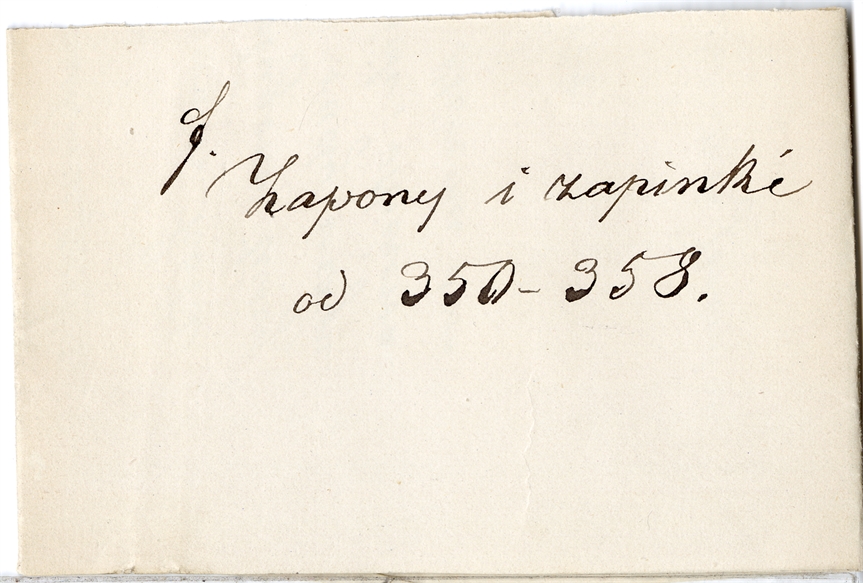 f.
Zapony i zapinki
od 350-358.